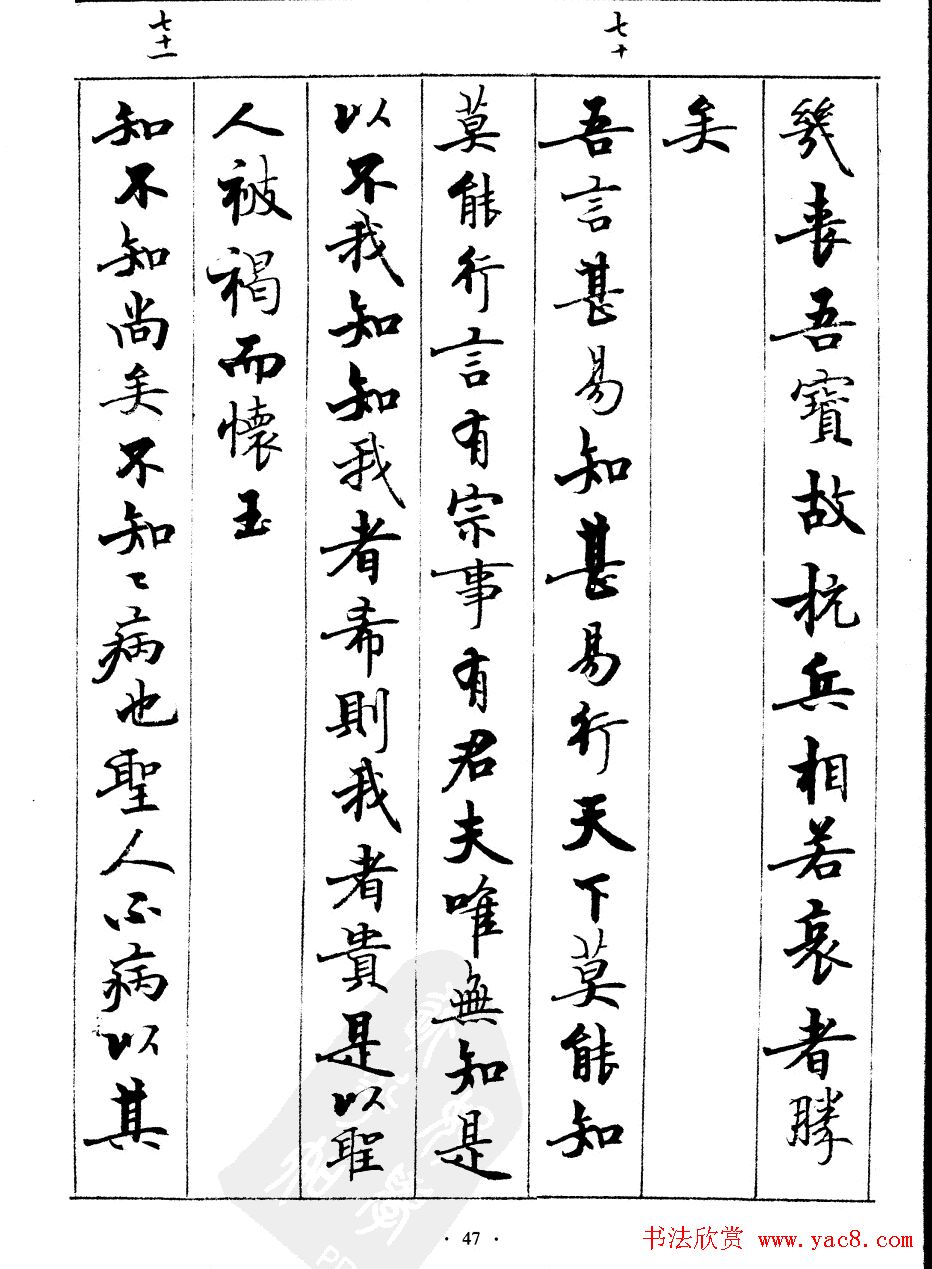 七十
七十一
幾喪吾寶故抗兵相若哀者勝
矣
吾言甚易知甚易行天下莫能知
莫能行言有宗事有君夫唯無知是
以不我知知我者希則我者貴是以聖
人被褐而懷玉
知不知尚矣不知知病也聖人不病以其
· 47 ·
书法欣赏 www.yac8.com